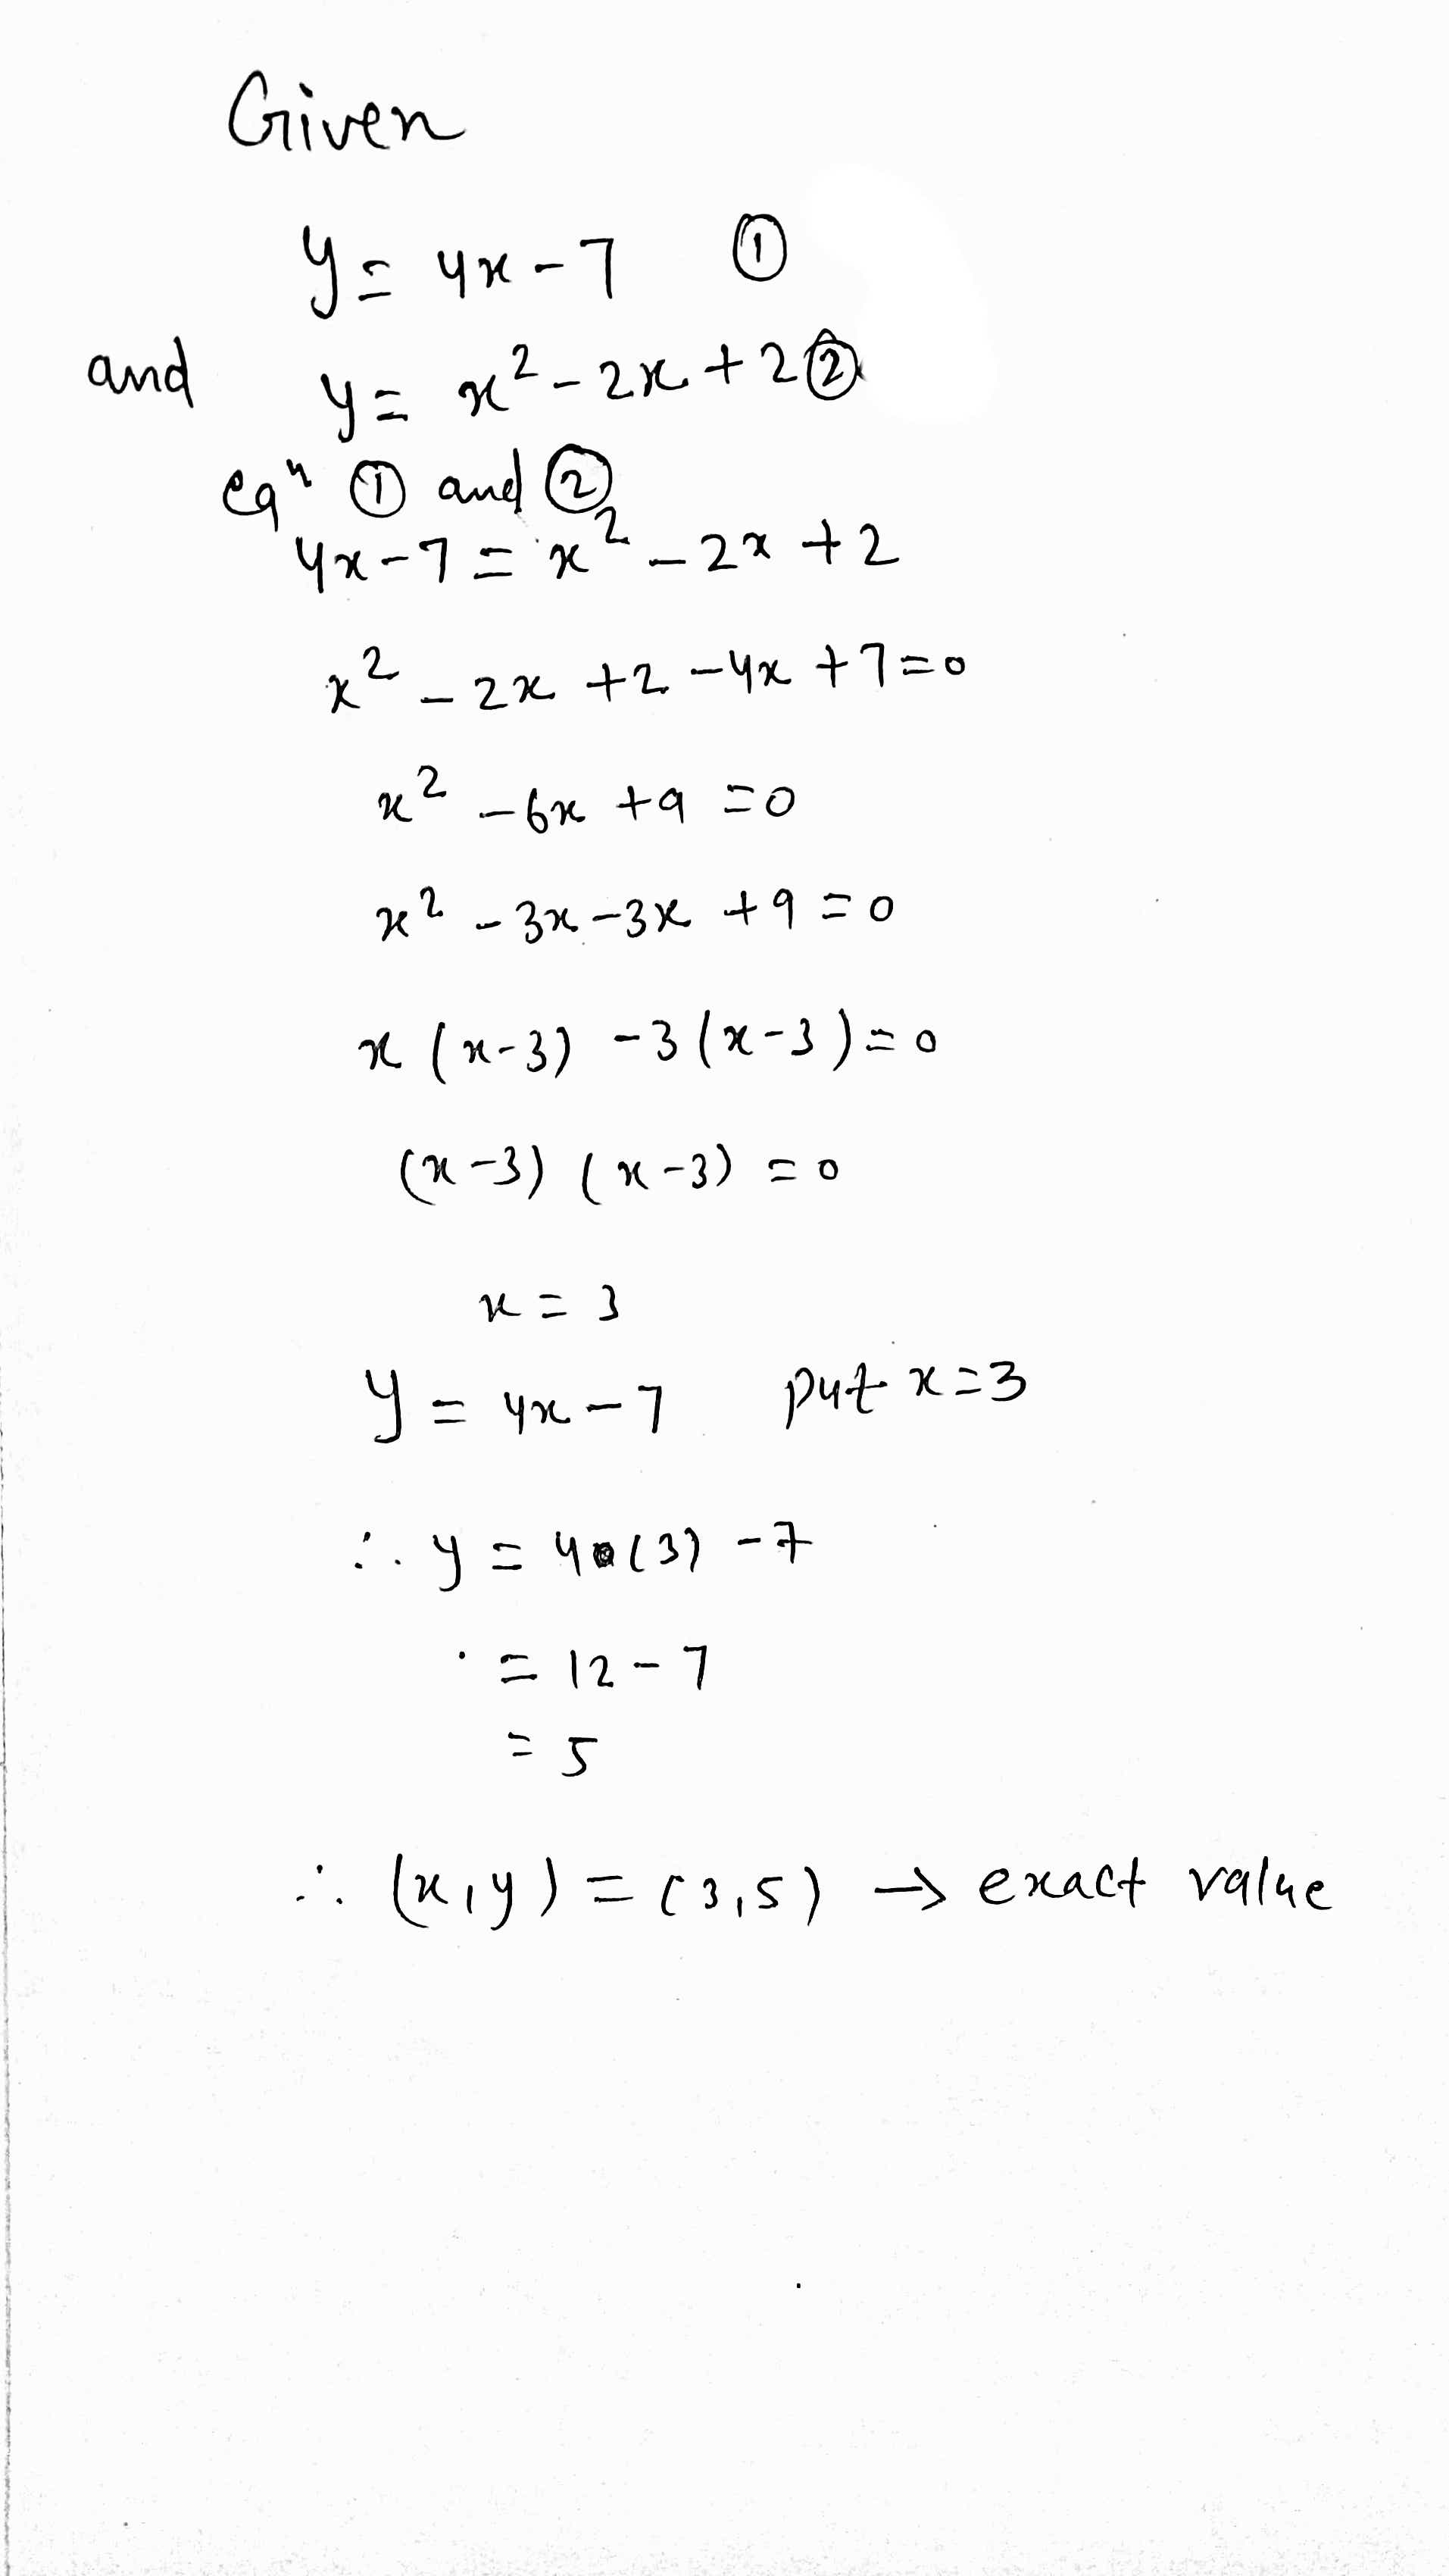 Given
y = 4x - 7 ①
and y = x² - 2x + 2 ②
eqⁿ ① and ②
4x - 7 = x² - 2x + 2
x² - 2x + 2 - 4x + 7 = 0
x² - 6x + 9 = 0
x² - 3x - 3x + 9 = 0
x (x - 3) - 3 (x - 3) = 0
(x - 3) (x - 3) = 0
x = 3
y = 4x - 7 put x = 3
∴ y = 4 (3) - 7
= 12 - 7
= 5
∴ (x, y) = (3, 5) → exact value